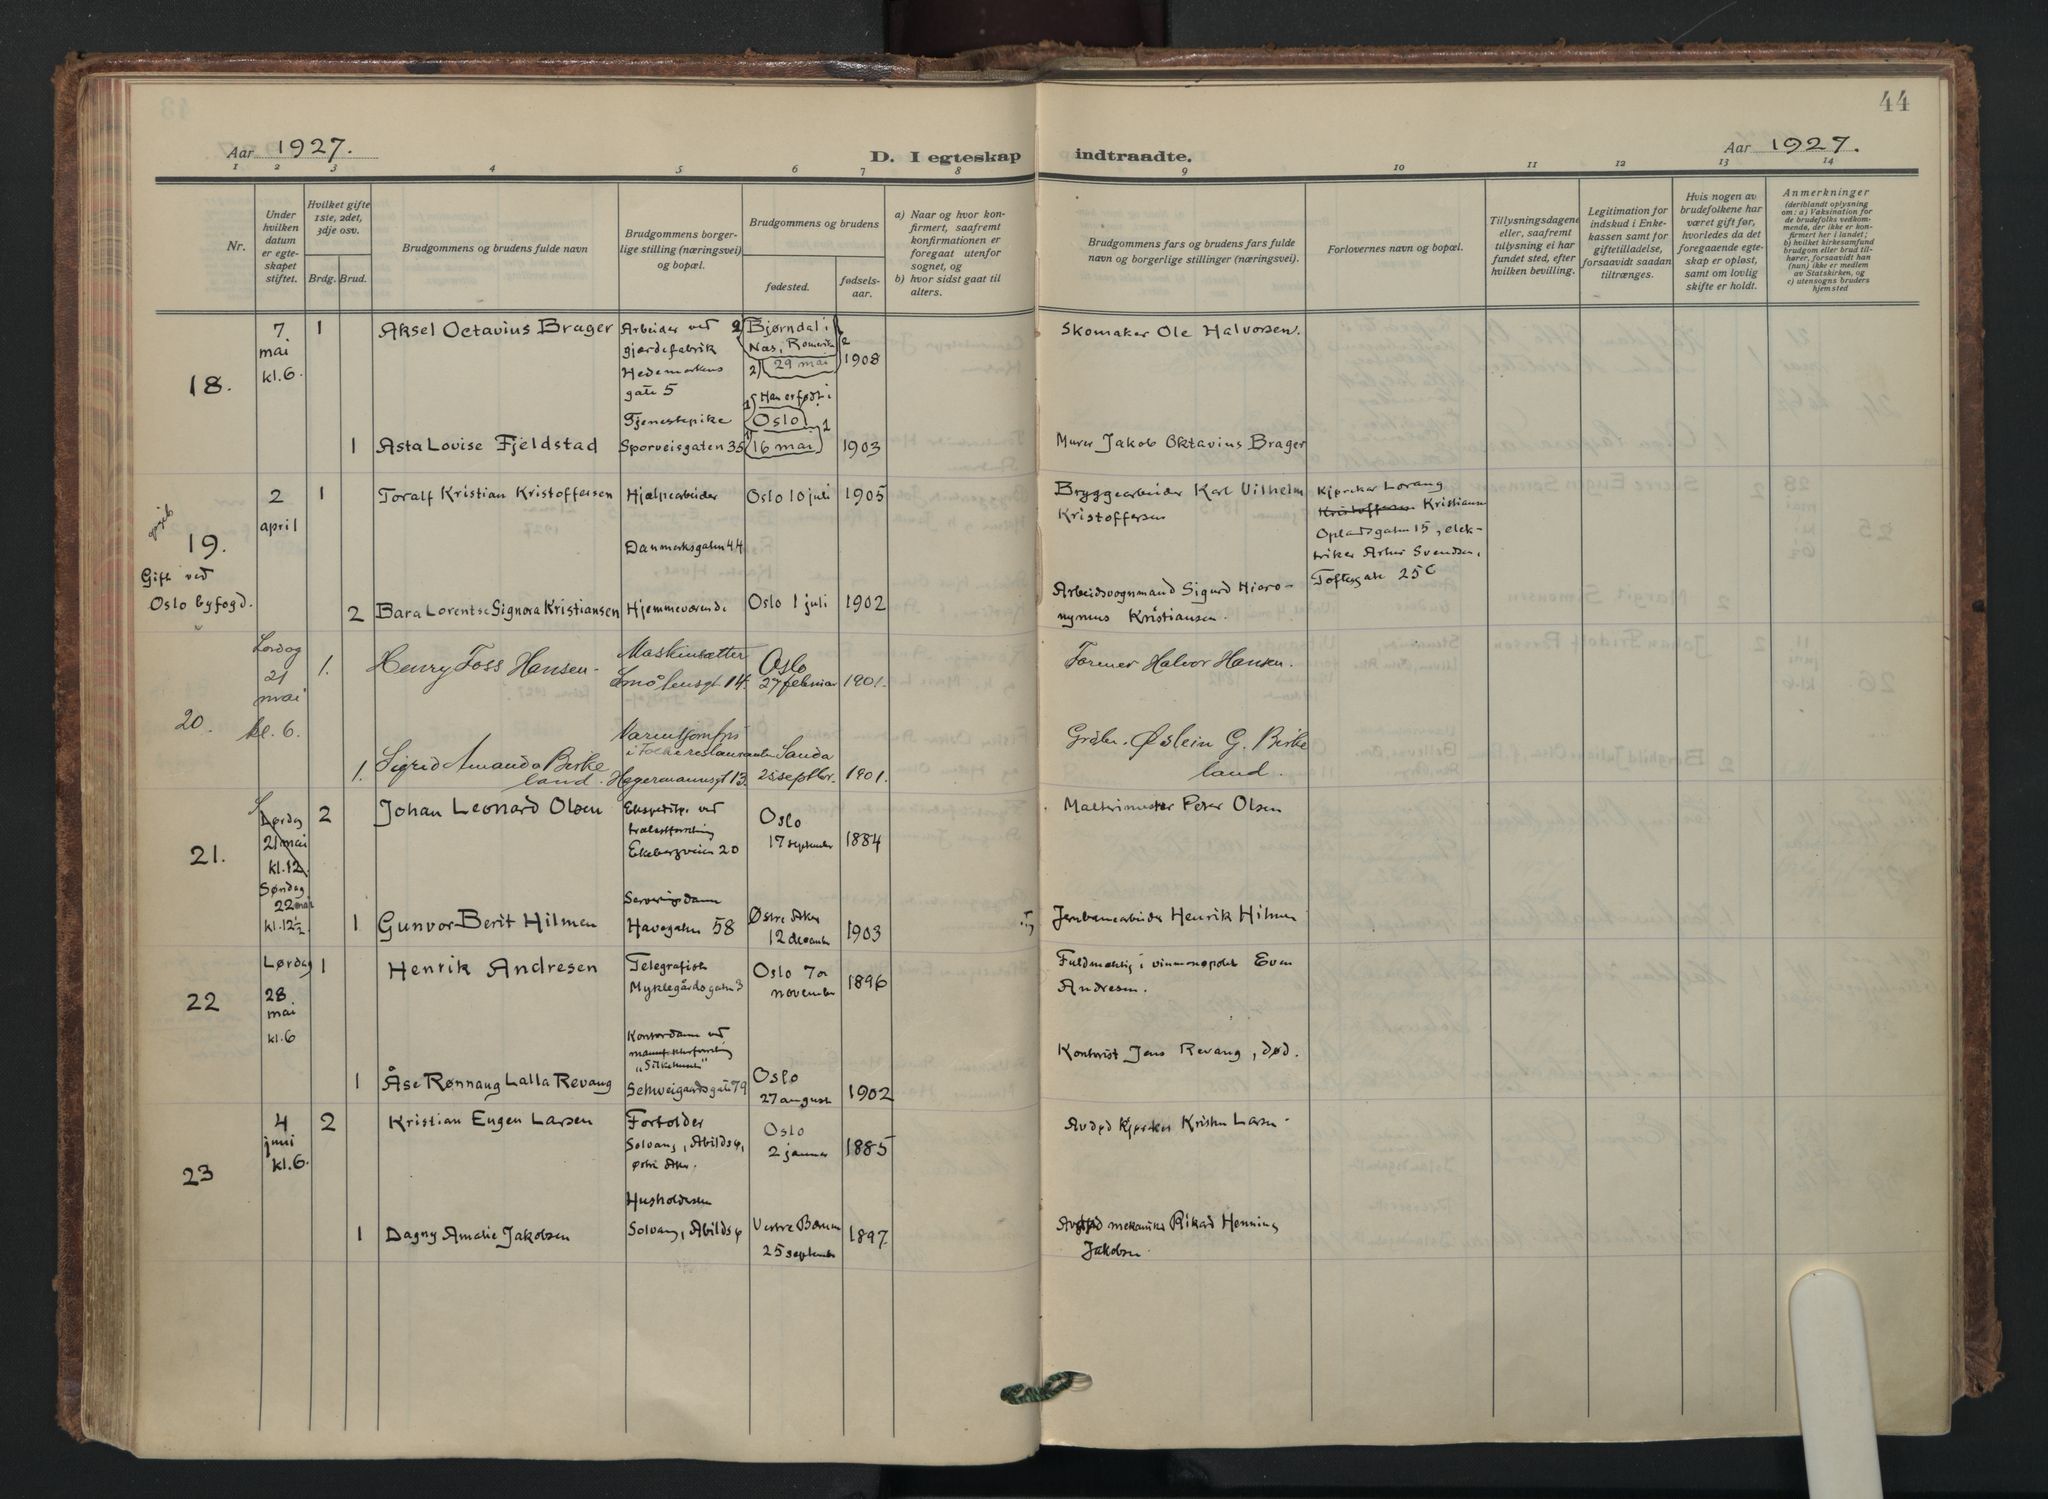 44
Aar 1927.
D. I egteskap indtraadte.
Aar 1927.
1 2 3 4 5 6 7 8 9 10 11 12 13 14
Nr.
Under hvilken datum er egteskapet stiftet.
Hvilket gifte 1ste, 2det, 3dje osv.
Brdg. Brud.
Brudgommens og brudens fulde navn
Brudgommens borgerlige stilling (næringsvei) og bopæl.
Brudgommens og brudens
fødested.
fødselsaar.
a) Naar og hvor konfirmert, saafremt konfirmationen er foregaat utenfor sognet, og
b) hvor sidst gaat til alters.
Brudgommens fars og brudens fars fulde navn og borgerlige stillinger (næringsvei).
Forlovernes navn og bopæl.
Tillysningsdagene eller, saafremt tillysning ei har fundet sted, efter hvilken bevilling.
Legitimation for indskud i Enkekassen samt for giftetilladelse, forsaavidt saadan tiltrænges.
Hvis nogen av brudefolkene har været gift før, hvorledes da det foregaaende egteskap er opløst, samt om lovlig skifte er holdt.
Anmerkninger
(deriblandt oplysning om: a) Vaksination for de brudefolks vedkommende, der ikke er konfirmert her i landet; b) hvilket kirkesamfund brudgom eller brud tilhører, forsaavidt han (hun) ikke er medlem av Statskirken, og c) utensogns bruders hjemsted
18.
7. mai kl. 6.
1
Aksel Octavius Brager
Arbeider ved gjærdefabrik
Hedemarkens gate 5
2) Bjørndal i Nes, Romerike
2) 29 mai
1908
Skomaker Ole Halvorsen.
1
Asta Lovise Fjeldstad
Tjenestepike
Sporveisgaten 35
1) Han er født i
Oslo 1
1) 16 mai
1903
Murer Jakob Oktavius Brager
19.
Gift ved
Oslo byfogd.
2 april
1
Toralf Kristian Kristoffersen
Hjælpearbeider
Danmarksgaten 44
Oslo 10 juli
1905
Bryggearbeider Karl Vilhelm
Kristoffersen
Kjørekar Lorang
Kristoffersen Kristiansen
Oplandsgaten 15, elek-
triker Artur Svendsen,
Toftesgate 25 C
2
Bara Lorentse Signora Kristiansen
Hjemmeværende
Oslo 1 juli
1902
Arbeidsvognmand Sigurd Hiero-
nymus Kristiansen.
20.
Lørdag
21
mai
kl. 6.
1.
Henry Foss Hansen.
Maskinsætter
Smålensgt 14.
Oslo
27 februar
1901.
Former Halvor Hansen.
1.
Sigrid Amanda Birke
land.
Hegermannsgt 13.
Sauda
25 septbr.
1901.
Østein G. Birke
land.
21.
Lørdag
21 mai
kl. 12
Søndag
22 mai
kl. 12½
2
Johan Leonard Olsen
Ekspeditør ved
trælastforretning
Ekebergveien 20
Oslo
17 september
1884
Maltermester Peter Olsen
1
Gunvor Berit Hilmen
Serveringsdame
Havegaten 58
Østre Aker
12 december
1903
Jernbanearbeider Henrik Hilmen
22
Lørdag
28
mai
kl. 6
1
Henrik Andresen
Telegrafist
Myklegårdsgaten 3
Oslo 7de
november
1896
Fuldmektig i vinmonopolet Even
Andresen.
1
Åse Rønnaug Lalla Revang
Kontordame ved
manufakturforretning
„Silkehuset"
Schweigaardsgate 79
Oslo
27 august
1902
Kontorist Jens Revang, død.
23
4
juni
kl. 6.
2
Kristian Eugen Larsen
Forholder
Solvang, Abildsø,
østre Aker.
Oslo
2 januar
1885
Avdød kjørekar Kristen Larsen.
1
Dagny Amalie Jakobsen
Husholderske
Solvang, Abildsø
Vestre Bærum
25 september
1897.
Avdød mekaniker Rikard Henning
Jakobsen.